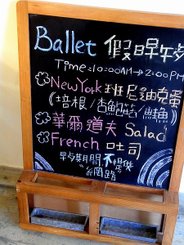 Ballet 假日早午
Time:10:00AM→2:00PM
NewYork班尼迪克蛋
(培根/ /鮭魚)
華爾道夫Salad
French吐司
早午期間不提供